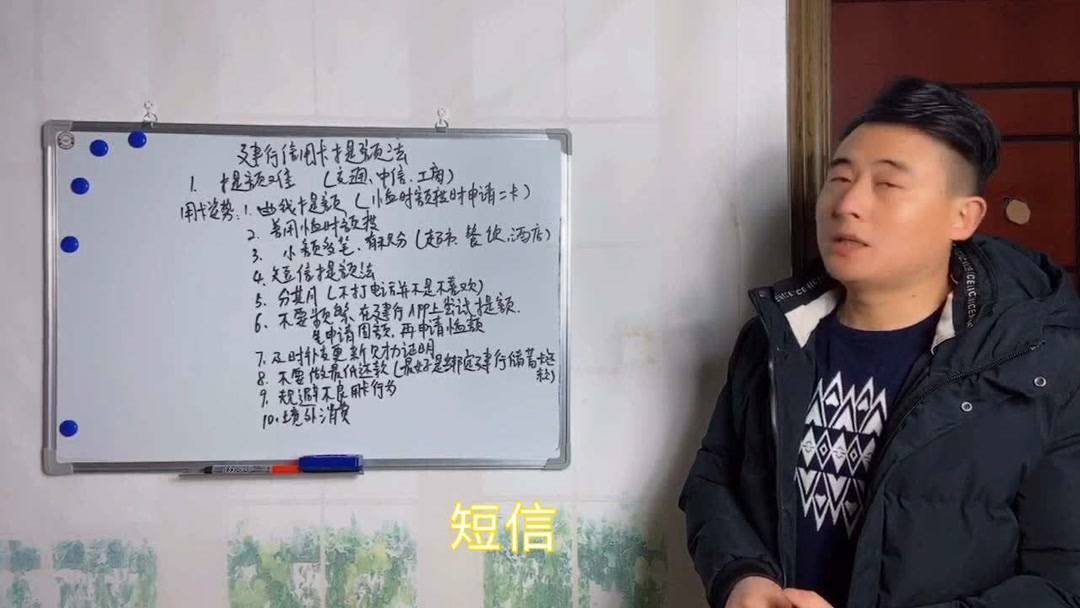 建行信用卡提额法
1. 提额对佳 (交通、中信、工商)
用卡姿势: 1. 曲线提额 (临时额度时申请二卡)
2. 善用临时额度
3. 小额多笔、有积分 (超市、餐饮、酒店)
4. 短信提额法
5. 分期 (不打电话并不是不喜欢)
6. 不要频繁在建行APP上尝试提额、
先申请固额,再申请临额
7. 及时补充更新财力证明
8. 不要做最低还款 (最好是绑定建行储蓄卡
9. 规避不良用卡行为
10. 境外消费
短信